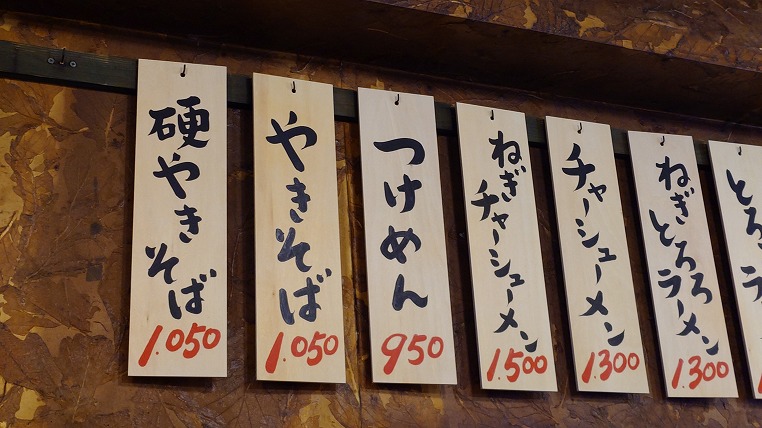 硬やきそば
1.050
やきそば
1.050
つけめん
950
ねぎ
チャーシューメン
1.500
チャーシューメン
1.300
ねぎ
とろろ
ラーメン
1.300
とろ